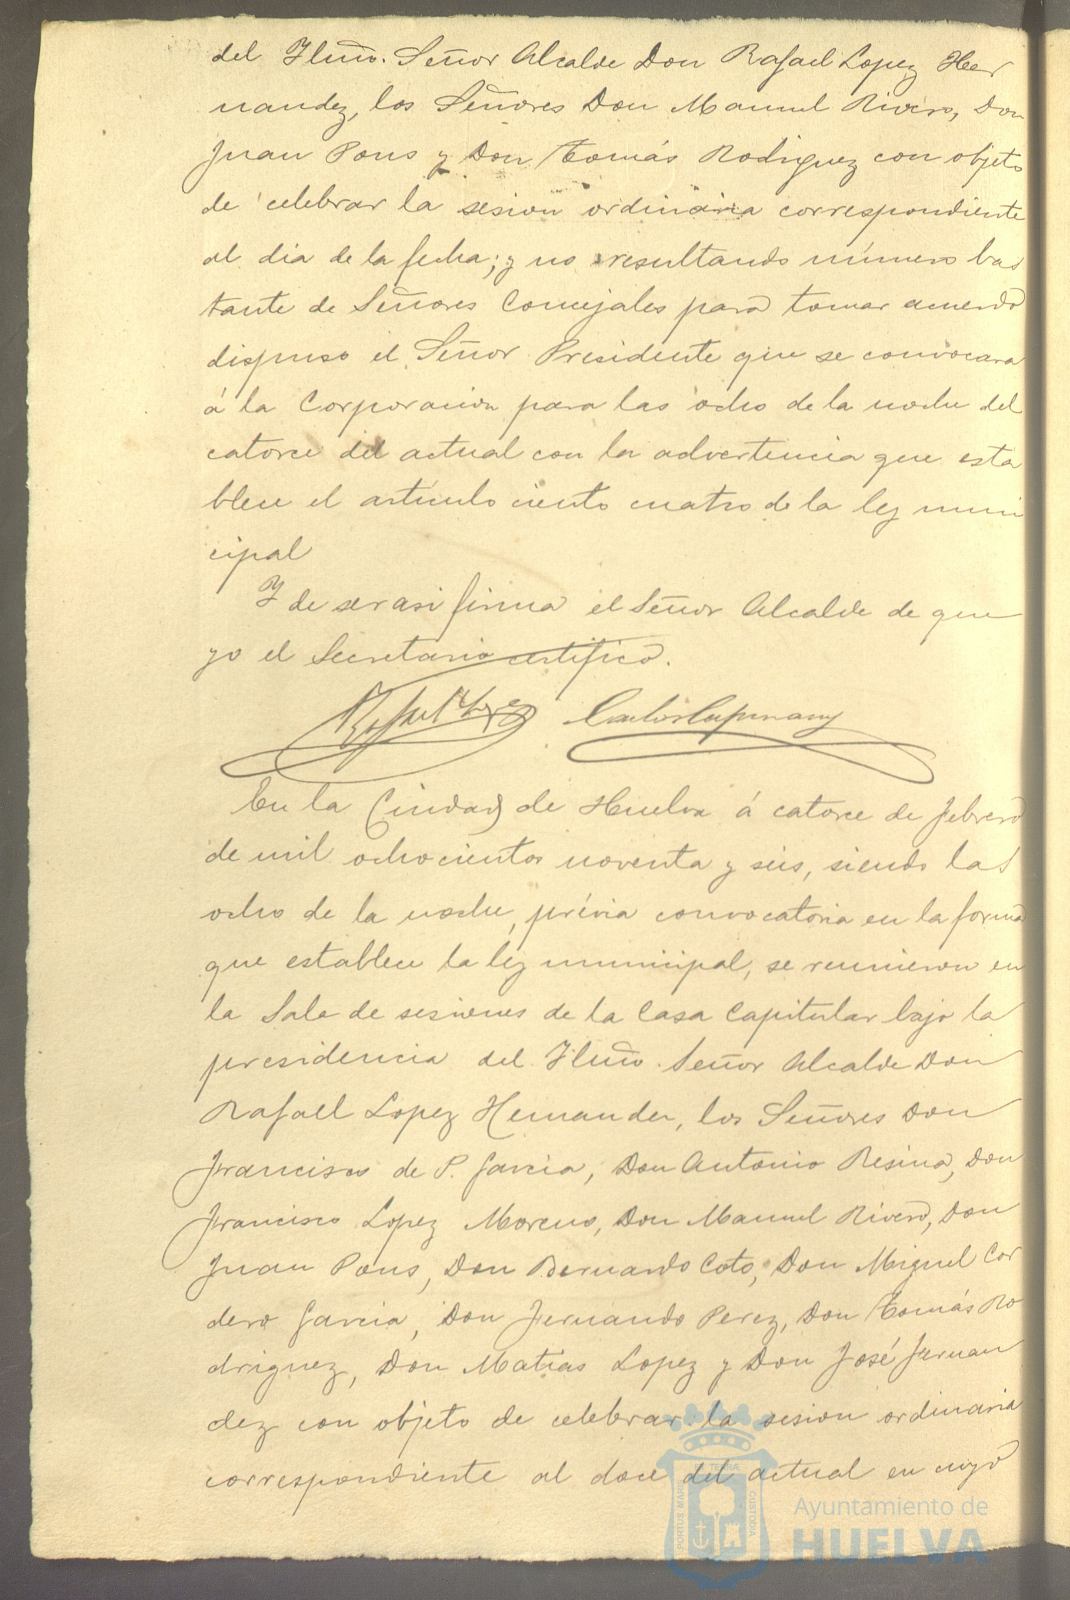 del Yltmo. Señor Alcalde Don Rafael Lopez Her
nandez, los Señores Don Manuel Rivero, Don
Juan Pons y Don Tomás Rodriguez con objeto
de celebrar la sesion ordinaria correspondiente
al dia de la fecha; y no resultando número bas
tante de Señores Concejales para tomar acuerdo
dispuso el Señor Presidente que se convocara
á la Corporacion para las ocho de la noche del
catorce del actual con la advertencia que esta
blece el artículo ciento cuatro de la ley muni
cipal
Y de ser asi firma el Señor Alcalde de que
yo el Secretario certifico.
En la Ciudad de Huelva á catorce de febrero
de mil ochocientos noventa y seis, siendo las
ocho de la noche, prévia convocatoria en la forma
que establece la ley municipal, se reunieron en
la Sala de sesiones de la Casa Capitular bajo la
presidencia del Yltmo. Señor Alcalde Don
Rafael Lopez Hernandez, los Señores Don
Francisco de P. Garcia, Don Antonio Resina, Don
Francisco Lopez Moreno, Don Manuel Rivero, Don
Juan Pons, Don Bernardo Coto, Don Miguel Cor
dero Garcia, Don Fernando Perez, Don Tomás Ro
driguez, Don Matias Lopez y Don José Fernan
dez con objeto de celebrar la sesion ordinaria
correspondiente al doce del actual en cuyo
Ayuntamiento de
HUELVA